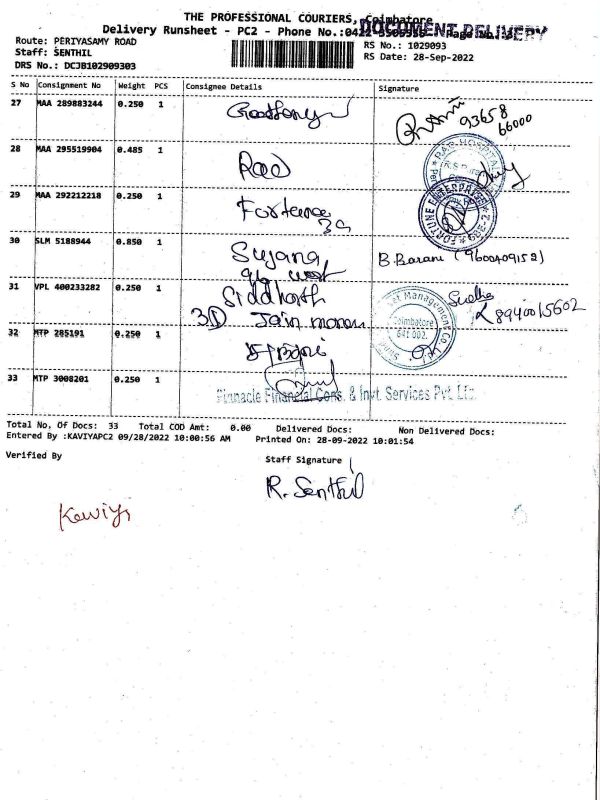 THE PROFESSIONAL COURIERS, Coimbatore
DOCUMENT DELIVERY
Delivery Runsheet - PC2 - Phone No.:0422 Page No. 3
Route: PERIYASAMY ROAD
RS No.: 1029093
Staff: SENTHIL
RS Date: 28-Sep-2022
DRS No.: DCJB102909303
S No Consignment No Weight PCS Consignee Details Signature
27 MAA 289883244 0.250 1
93658
66000
28 MAA 295519904 0.485 1 Rao
29 MAA 292212218 0.250 1 Fortune
FORTUNE ENTERPRISE
30 SLM 5188944 0.850 1 Sujana
B.Barani (9600409152)
31 VPL 400233282 0.250 1 Siddharth
Sudha
8940015602
3D Jain
Coimbatore
641 002.
32 MTP 285191 0.250 1
33 MTP 3008201 0.250 1
Pinnacle Financial Cons. & Invt. Services Pvt. Ltd.
Total No. Of Docs: 33 Total COD Amt: 0.00 Delivered Docs: Non Delivered Docs:
Entered By :KAVIYAPC2 09/28/2022 10:00:56 AM Printed On: 28-09-2022 10:01:54
Verified By Staff Signature
R. Senthil
Kaviya